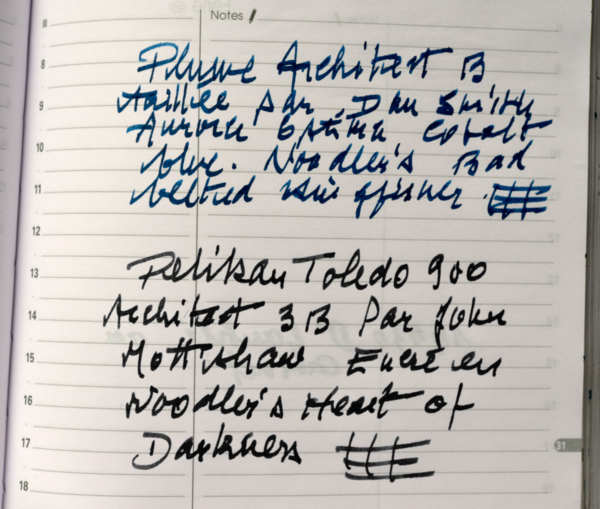 Notes
8
Plume Architect B
9
taillée par Dan Smith
Aurora Optima Cobalt
10
blue. Noodler's Bad
11
belted kingfisher
12
13
Pelikan Toledo 900
14
Architect 3B Par John
15
Mottishaw Encre en
16
Noodler's Heart of
17
Darkness
31
18